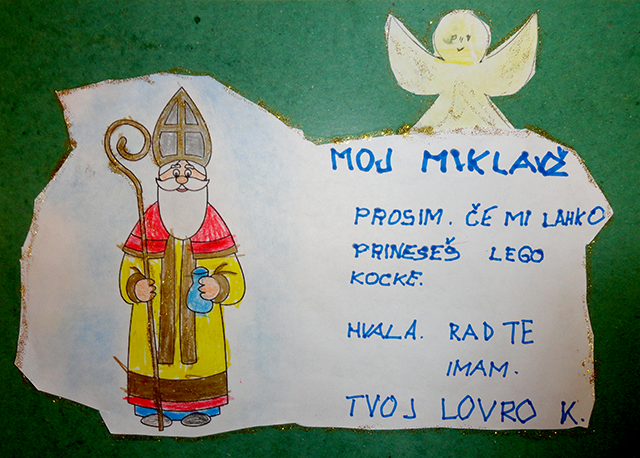 MOJ MIKLAVŽ
PROSIM. ČE MI LAHKO
PRINESEŠ LEGO
KOCKE.
HVALA. RAD TE
IMAM.
TVOJ LOVRO K.